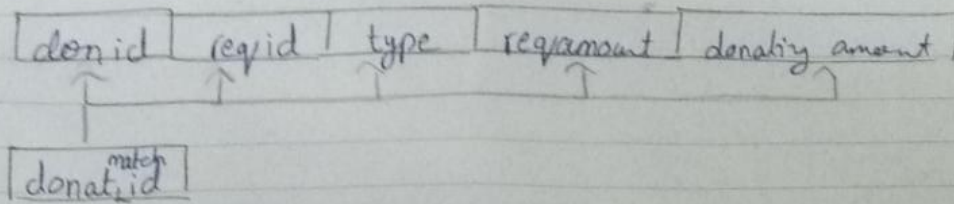 donid reqid type reqamount donating amount
donat match id